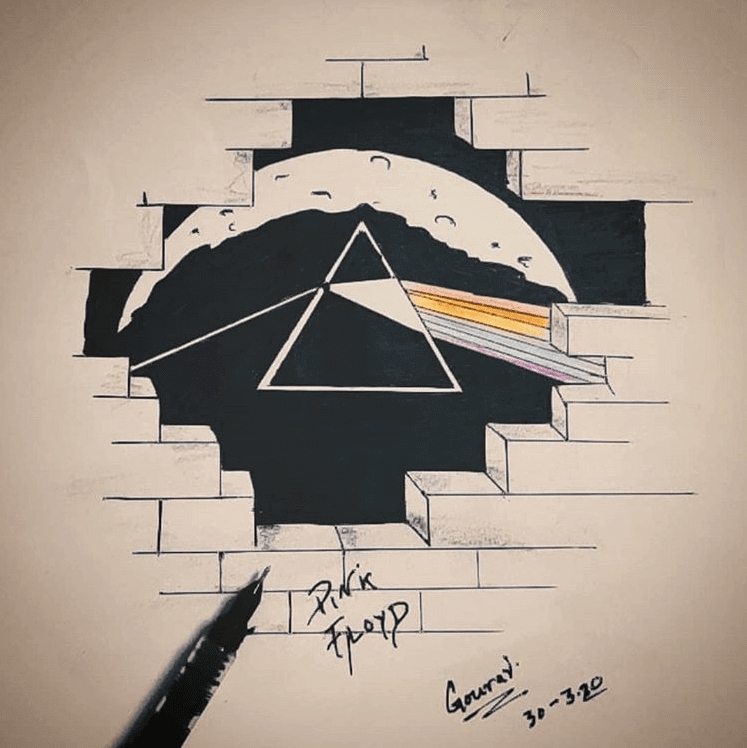 Pink
Floyd
Gourav.
30-3-20